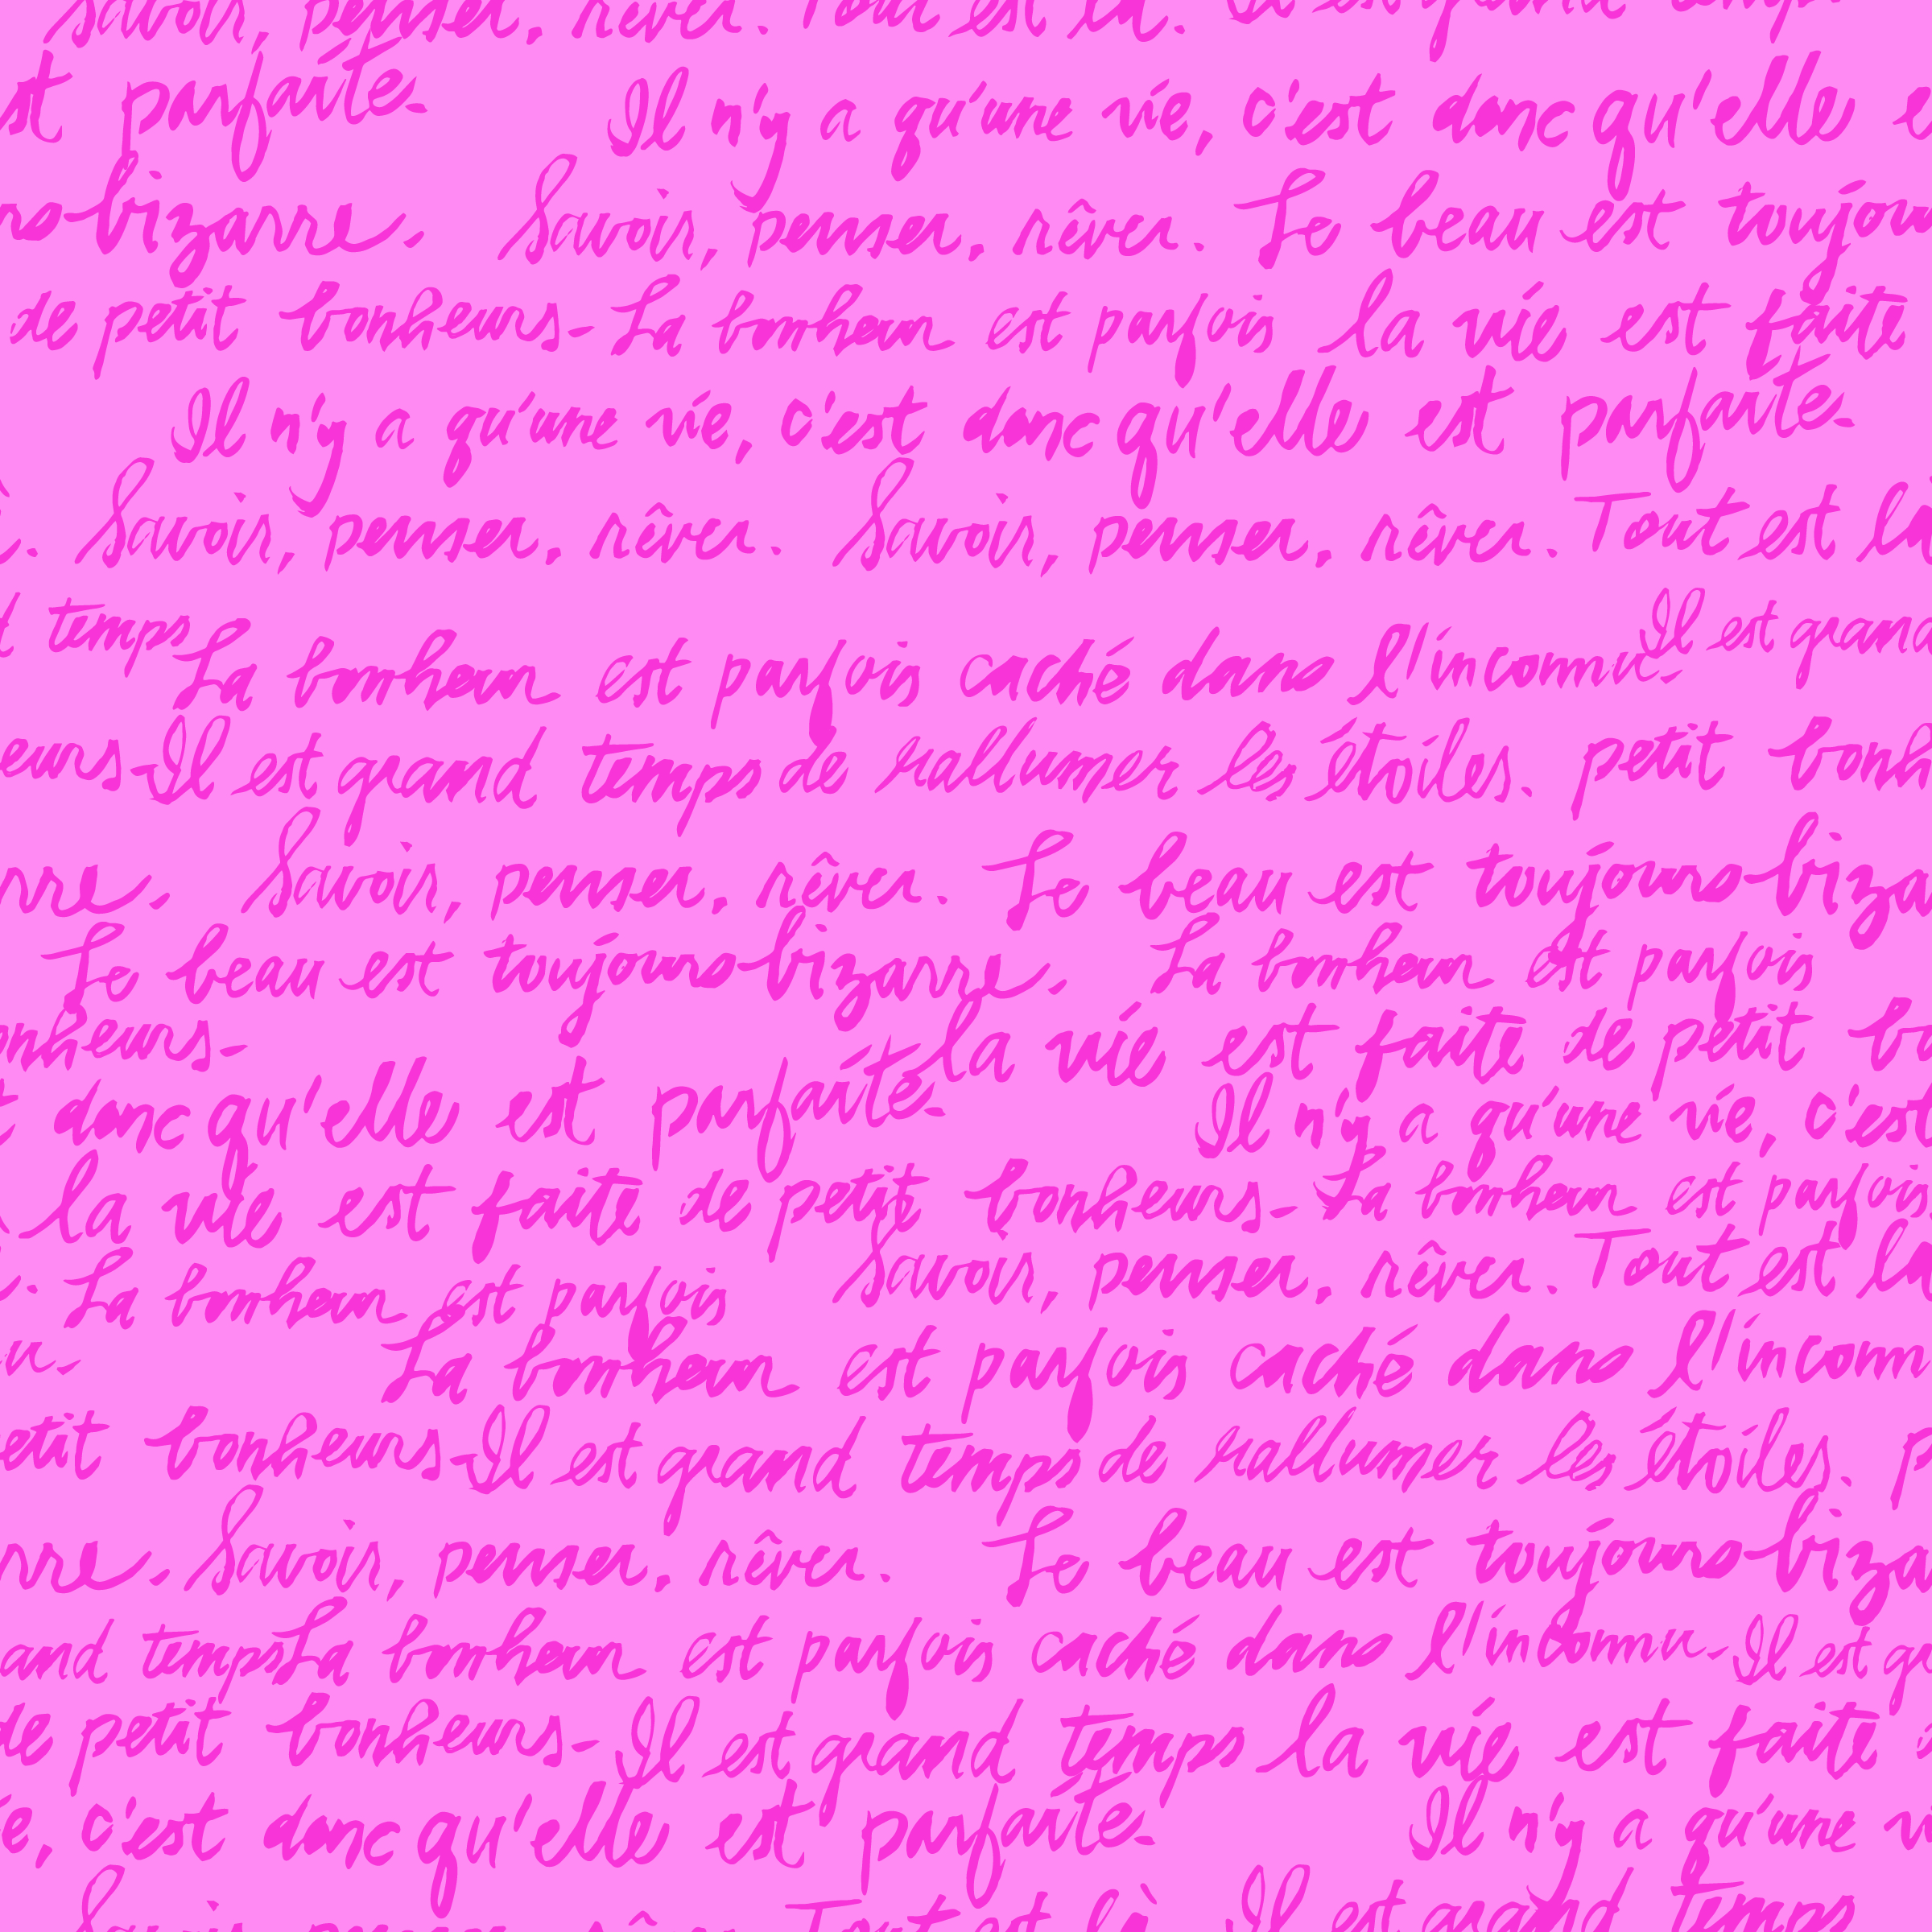 Savoir, penser. rêver. Tout est là. Il est grand temps
st parfaite. Il n'y a qu'une vie, c'est donc qu'elle e
rs bizarre. Savoir, penser. rêver. Le beau est toujour
de petit bonheurs. La bonheur est parfois la vie est faite
Il n'y a qu'une vie, c'est donc qu'elle est parfaite.
. Savoir, penser. rêver. Savoir, penser. rêver. Tout est là
d temps La bonheur est parfois caché dans l'inconnu. Il est grand
eurs. Il est grand temps de rallumer les étoiles. petit bonh
rre. Savoir, penser. rêver. Le beau est toujours biza
Le beau est toujours bizarre. La bonheur est parfois
onheurs. la vie est faite de petit bo
t donc qu'elle est parfaite. Il n'y a qu'une vie, c'est
la vie est faite de petit bonheurs. La bonheur est parfois
. La bonheur est parfois Savoir, penser. rêver. Tout est là
u. La bonheur est parfois caché dans l'inconn
etit bonheurs. Il est grand temps de rallumer les étoiles. p
rre. Savoir, penser. rêver. Le beau est toujours biza
and temps La bonheur est parfois caché dans l'inconnu. Il est gr
de petit bonheurs. Il est grand temps la vie est faite
e, c'est donc qu'elle est parfaite. Il n'y a qu'une v
Savoir, penser. rêver. Tout est là. Il est grand temps